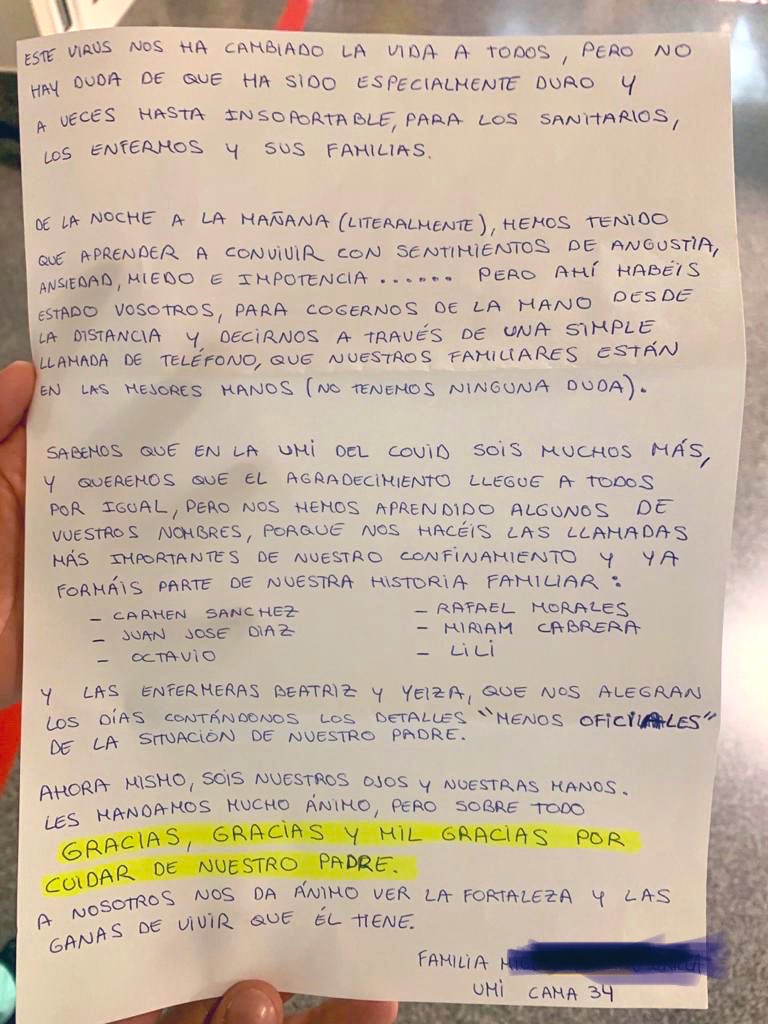 ESTE VIRUS NOS HA CAMBIADO LA VIDA A TODOS, PERO NO
HAY DUDA DE QUE HA SIDO ESPECIALMENTE DURO Y
A VECES HASTA INSOPORTABLE, PARA LOS SANITARIOS,
LOS ENFERMOS Y SUS FAMILIAS.
DE LA NOCHE A LA MAÑANA (LITERALMENTE), HEMOS TENIDO
QUE APRENDER A CONVIVIR CON SENTIMIENTOS DE ANGUSTIA,
ANSIEDAD, MIEDO E IMPOTENCIA ...... PERO AHÍ HABÉIS
ESTADO VOSOTROS, PARA COGERNOS DE LA MANO DESDE
LA DISTANCIA Y DECIRNOS A TRAVÉS DE UNA SIMPLE
LLAMADA DE TELÉFONO, QUE NUESTROS FAMILIARES ESTÁN
EN LAS MEJORES MANOS (NO TENEMOS NINGUNA DUDA).
SABEMOS QUE EN LA UMI DEL COVID SOIS MUCHOS MÁS,
Y QUEREMOS QUE EL AGRADECIMIENTO LLEGUE A TODOS
POR IGUAL, PERO NOS HEMOS APRENDIDO ALGUNOS DE
VUESTROS NOMBRES, PORQUE NOS HACÉIS LAS LLAMADAS
MÁS IMPORTANTES DE NUESTRO CONFINAMIENTO Y YA
FORMÁIS PARTE DE NUESTRA HISTORIA FAMILIAR:
- CARMEN SANCHEZ - RAFAEL MORALES
- JUAN JOSE DIAZ - MIRIAM CABRERA
- OCTAVIO - LILI
Y LAS ENFERMERAS BEATRIZ Y YEIZA, QUE NOS ALEGRAN
LOS DÍAS CONTÁNDONOS LOS DETALLES "MENOS OFICIALES"
DE LA SITUACIÓN DE NUESTRO PADRE.
AHORA MISMO, SOIS NUESTROS OJOS Y NUESTRAS MANOS.
LES MANDAMOS MUCHO ÁNIMO, PERO SOBRE TODO
GRACIAS, GRACIAS Y MIL GRACIAS POR
CUIDAR DE NUESTRO PADRE.
A NOSOTROS NOS DA ÁNIMO VER LA FORTALEZA Y LAS
GANAS DE VIVIR QUE ÉL TIENE.
FAMILIA
UMI CAMA 34